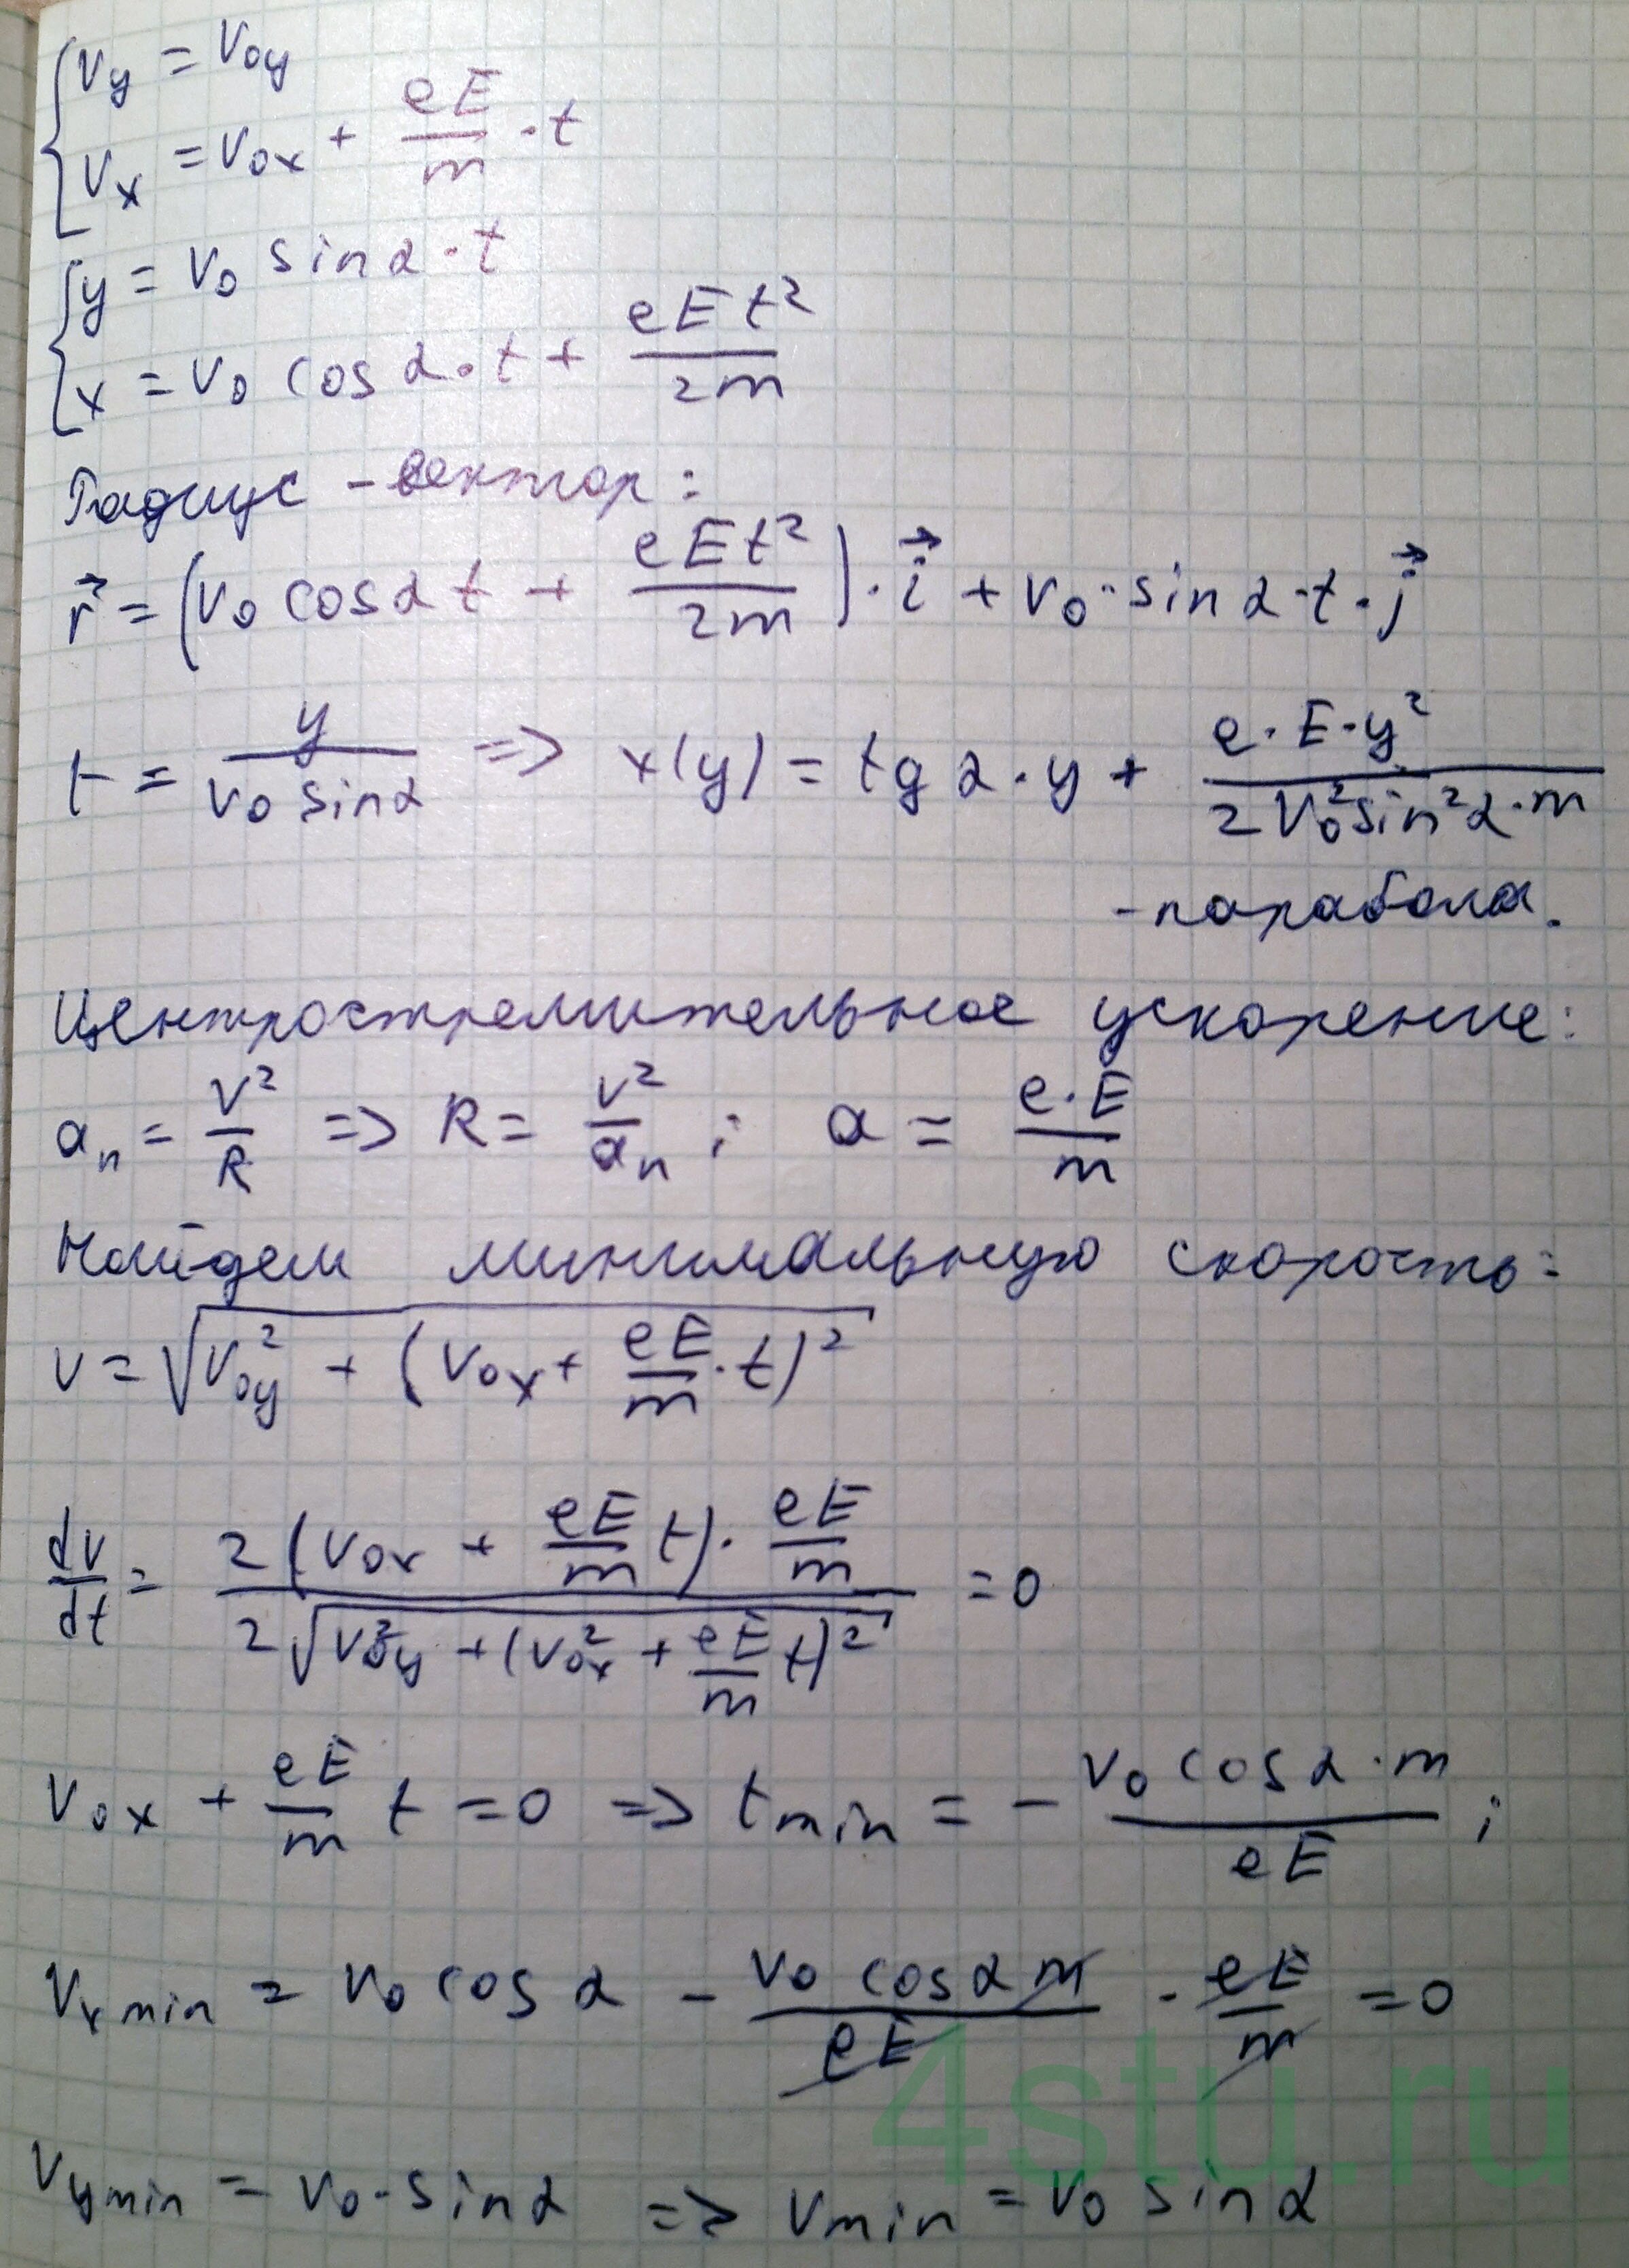 { v_y = v_0y
v_x = v_0x + eE/m · t
{ y = v_0 sin α · t
x = v_0 cos α · t + eEt²/2m
Радиус - вектор:
r⃗ = (v_0 cos α t + eEt²/2m) · i⃗ + v_0 · sin α · t · j⃗
t = y/(v_0 sin α) => x(y) = tg α · y + e · E · y²/(2 V_0² sin² α · m)
- парабола.
Центростремительное ускорение:
a_n = V²/R => R = v²/a_n ; a = e·E/m
Найдем минимальную скорость:
v = √(v_0y² + (v_0x + eE/m · t)²)
dv/dt = 2(v_0x + eE/m t) · eE/m / 2√(v_0y² + (v_0x² + eE/m t)²) = 0
v_0x + eE/m t = 0 => t_min = - v_0 cos α · m/eE ;
v_x min = v_0 cos α - v_0 cos α m/eE · eE/m = 0
v_y min = v_0 · sin α => v_min = v_0 sin α
4stu.ru